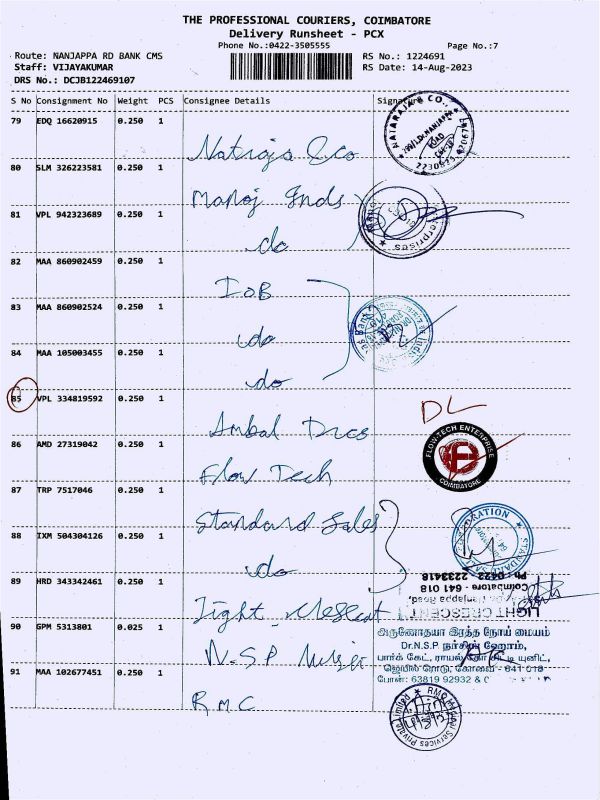 THE PROFESSIONAL COURIERS, COIMBATORE
Delivery Runsheet - PCX
Phone No.:0422-3505555
Page No.:7
Route: NANJAPPA RD BANK CMS
RS No.: 1224691
Staff: VIJAYAKUMAR
RS Date: 14-Aug-2023
DRS No.: DCJB122469107
S No Consignment No Weight PCS Consignee Details Signature
79 EDQ 16620915 0.250 1
NATARAJ & CO.,
ROAD
Natraja & co
80 SLM 326223581 0.250 1
Manoj Inds
81 VPL 942323689 0.250 1
do
82 MAA 860902459 0.250 1
IOB
83 MAA 860902524 0.250 1
do
84 MAA 105003455 0.250 1
do
85 VPL 334819592 0.250 1
DL
Ambal Dres
86 AMD 27319042 0.250 1
FLOW-TECH ENTERPRISE
COIMBATORE
Flow Tech
87 TRP 7517046 0.250 1
Standard Sales
88 IXM 504304126 0.250 1
do
Ph : 0423 - 2233418
Coimbatore - 641 018
89 HRD 343342461 0.250 1
LIGHT CRESCENT
Light Crescent
90 GPM 5313801 0.025 1
அருணோதயா இரத்த நோய் மையம்
Dr.N.S.P. நர்சிங் ஹோம்,
N.S.P
ஜெயில் ரோடு, கோவை - 641 018
போன்: 63819 92932 &
91 MAA 102677451 0.250 1
Services Private Limited
RMC
R M C